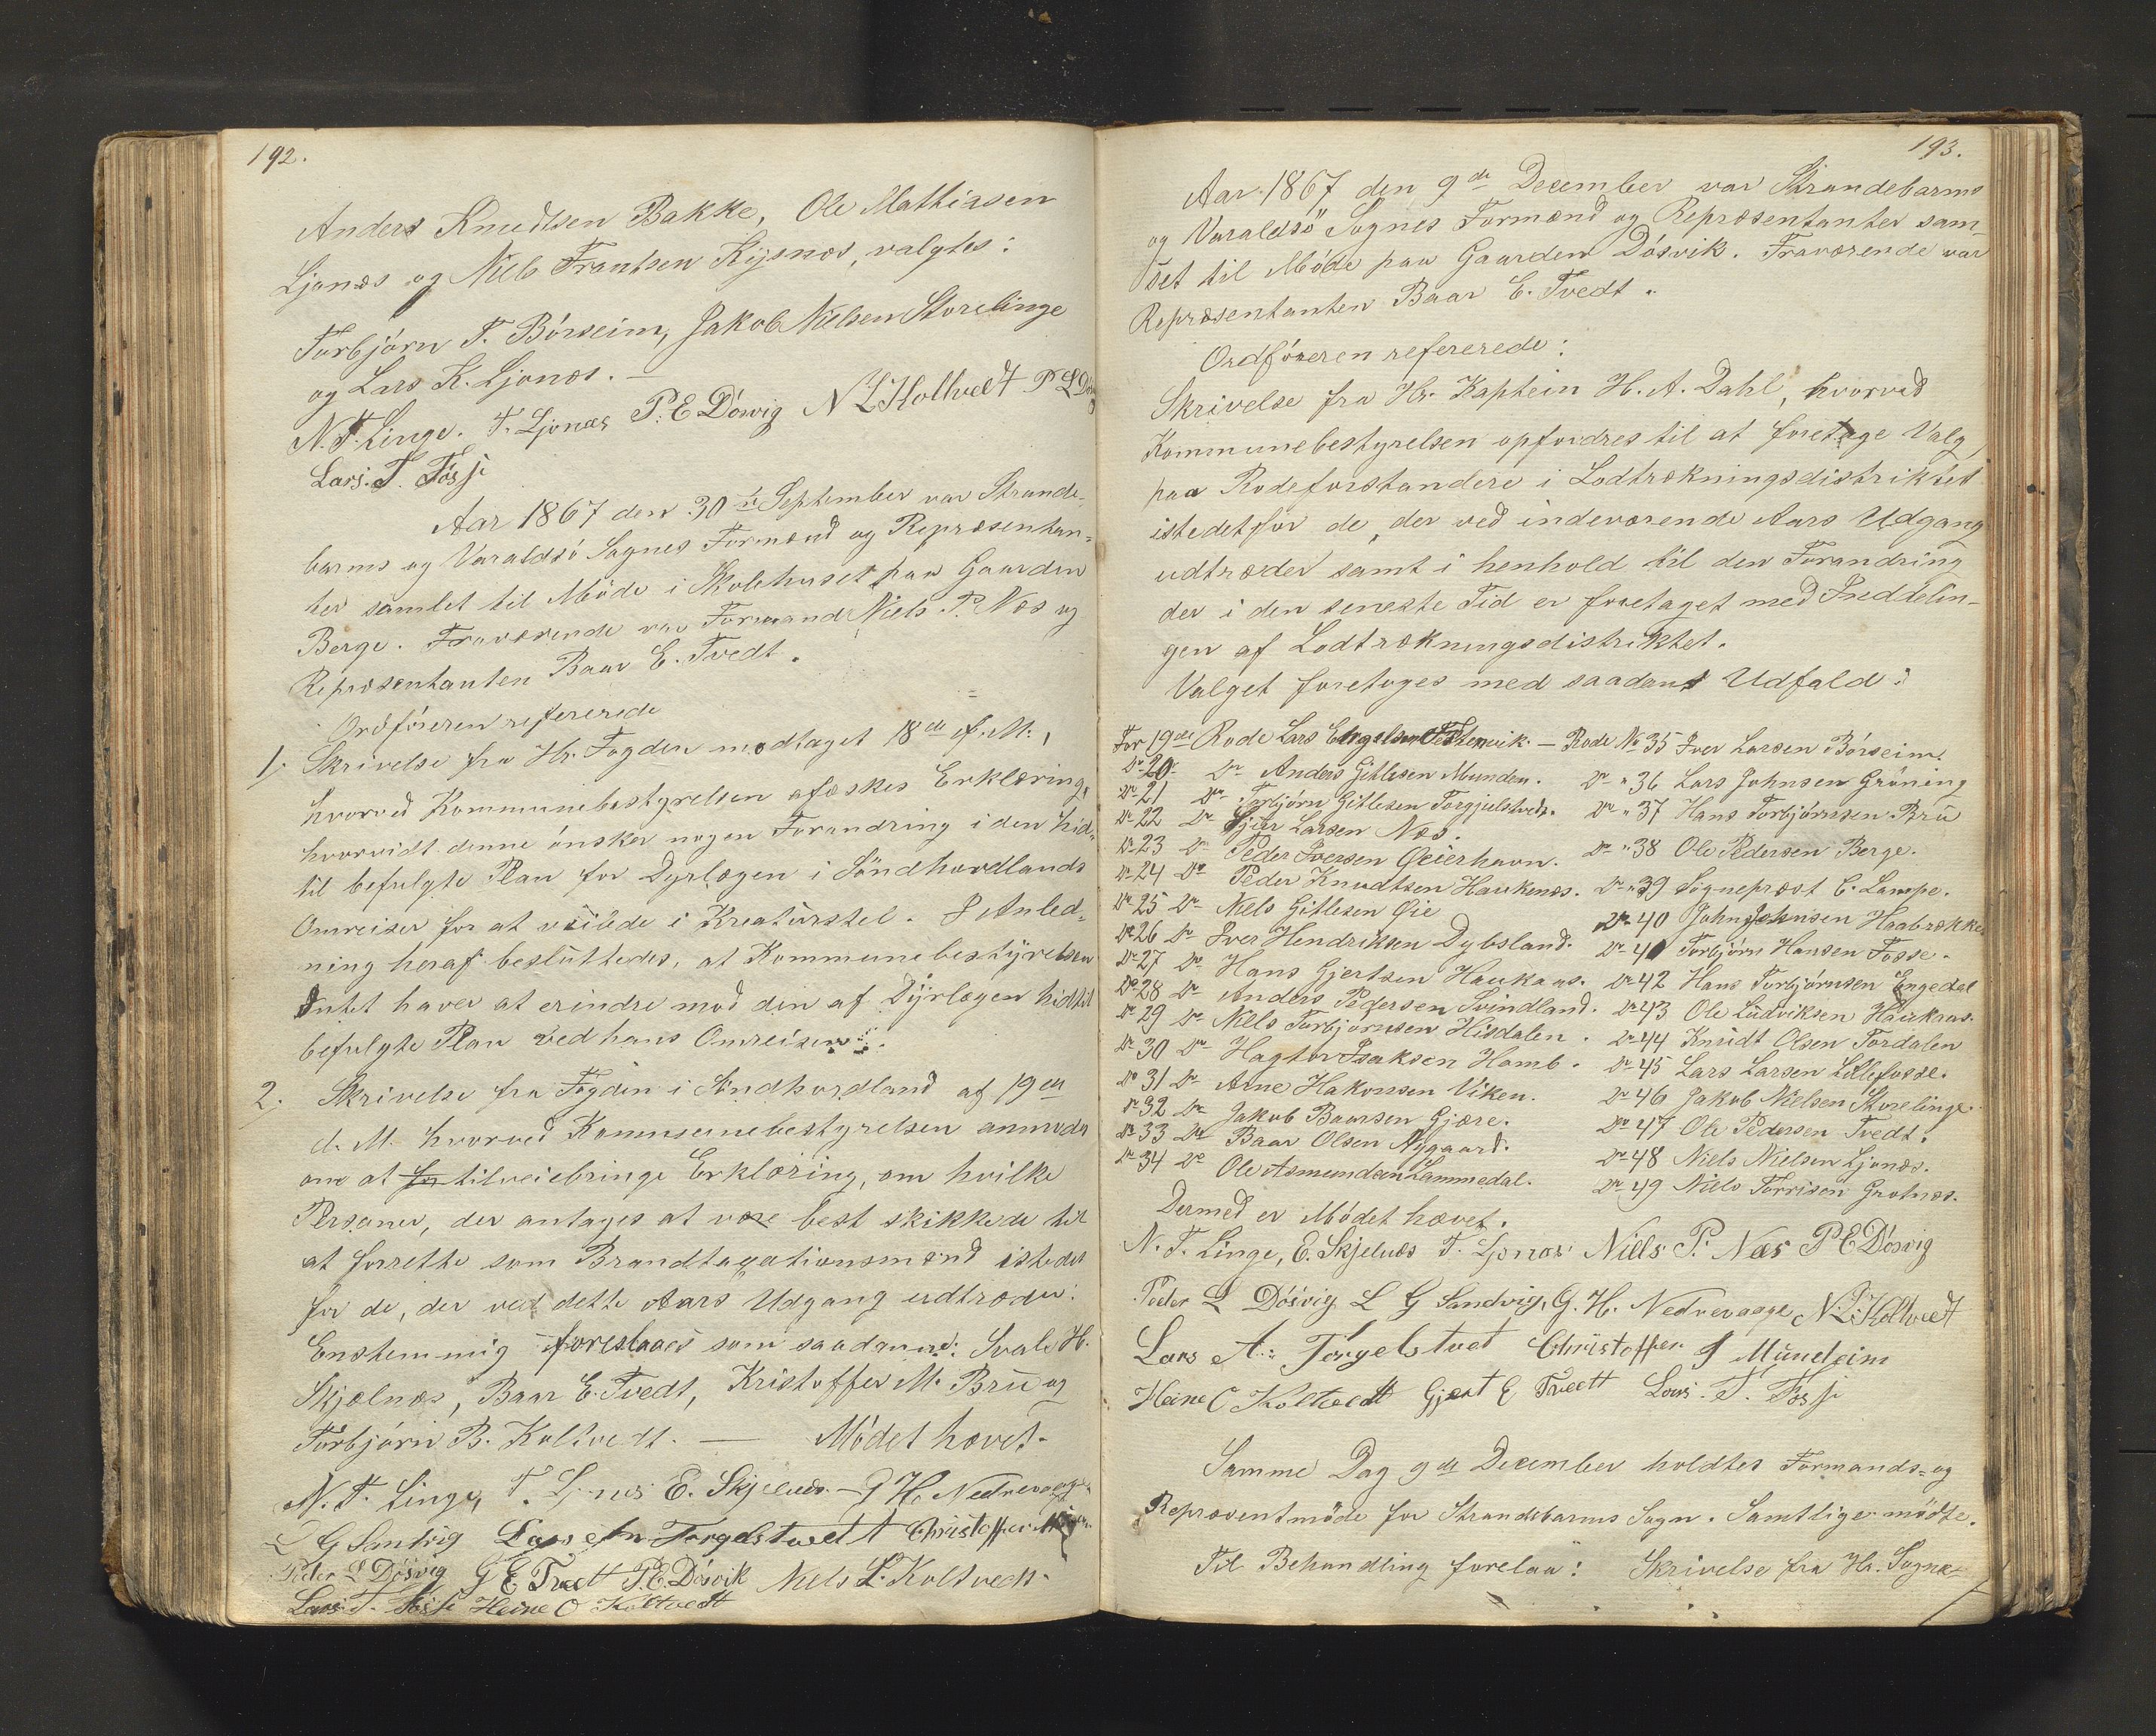 192.
Anders Knudtsen Bakke, Ole Mathiasen
Ljonæs og Niels Frantsen Kysnæs, valgtes:
Torbjørn T. Børseim, Jakob Nielsen Storelinge
og Lars K. Ljonæs. —
N. T. Linge. T. Ljonæs P. E Dòsvig N L Holtvedt P L Dòs
Lars. T. Fosse
Aar 1867 den 30te September var Strande-
barms og Varaldsó Sognes Formænd og Repræsentan-
ter samlet til Móde i Skolehuset paa Gaarden
Berge. Fraværende var Formand Niels P. Næs og
Repræsentanten Baar E. Tvedt.
Ordfóreren refererede
1, Skrivelse fra Hr. Fogden modtaget 18de f. M.,
hvorved Kommunebestyrelsen afæskes Erklæring,
hvorvidt denne ónsker nogen Forandring i den hid-
til befulgte Plan for Dyrlægen i Söndhordlands
Omreiser for at veilede i Kreaturstel. I Anled-
ning heraf besluttedes, at Kommunebestyrelsen
Intet haver at erindre mod den af Dyrlægen hidtil
befulgte Plan ved hans Omreiser.
2, Skrivelse fra Fogden i Söndhordland af 19de
d. M. hvorved Kommunebestyrelsen anmodes
om at for tilveiebringe Erklæring, om hvilke
Personer, der antages at være best skikkede til
at forrette som Brandtaxationsmænd istedet
for de, der ved dette Aars Udgang udtræder:
Enstemmig foreslaaes som saadanne: Svale H.
Skjælnæs, Baar E. Tvedt, Kristoffer M. Bru og
Torbjórn B. Koltvedt. — Módet hævet.
N. T. Linge, T. Ljonæs E. Skjelnæs — G H. Nedrevaage
L G Sandvig Lars An Torgelstvedt Christoffer
Peder L Dósvig G E Tvedt P. E. Dósvik Niels L. Koltvedt.
Lars T. Fosse Heine O Koltvedt
193.
Aar 1867 den 9de December var Strandebarms
og Varaldsö Sognes Formænd og Repræsentanter sam-
let til Móde paa Gaarden Dósvik. Fraværende var
Repræsentanten Baar E. Tvedt.
Ordfóreren refererede:
Skrivelse fra Hr. Kaptein H. A. Dahl, hvorved
Kommunebestyrelsen opfordres til at foretage Valg
paa Rodeforstandere i Lodtrækningsdistriktet
istedetfor de, der ved indeværende Aars Udgang
udtræder samt i henhold til den Forandring
der i den seneste Tid er foretaget med Inddelin-
gen af Lodtrækningsdistriktet.
Valget foretoges med saadant Udfald:
For 19de Rode Lars Engelsen Teslenvik. — Rode No 35 Iver Larsen Bórseim.
Do 20 Do Anders Gitlesen Munden. Do " 36 Lars Johnsen Gróning
Do 21 Do Torbjórn Gitlesen Torgjulstvedt. Do " 37 Hans Torbjórnsen Bru
Do 22 Do Larsen Næs. Do " 38 Ole Pedersen Berge.
Do 23 Do Peder Iversen Øeierhavn.
Do 24 Do Peder Knudtsen Haukenæs. Do " 39 Sognepræst C. Lampe.
Do 25 Do Niels Gitlesen Øie Do 40 John Johnsen Haabrække
Do 26 Do Iver Hendriksen Dybsland. Do 41 Torbjórn Hansen Fosse.
Do 27 Do Hans Gjertsen Haukaas. Do 42 Hans Torbjórnsen Engedal
Do 28 Do Anders Pedersen Svindland. Do 43 Ole Ludviksen Haukaas.
Do 29 Do Niels Torbjórnsen Hisdalen. Do 44 Knudt Olsen Tordalen
Do 30 Do Hagtor Isaksen Hamb. Do 45 Lars Larsen Lillefosse.
Do 31 Do Arne Hakonsen Viken. Do 46 Jakob Nielsen Storelinge.
Do 32 Do Jakob Baarsen Gjære. Do 47 Ole Pedersen Tvedt.
Do 33 Do Baar Olsen Nygaard. Do 48 Niels Nielsen Ljonæs.
Do 34 Do Ole Asmundsen Lammedal. Do 49 Niels Torrisen Grotnæs.
Dermed er Módet hævet.
N. T. Linge, E. Skjelnæs T. Ljonæs Niels P. Næs P E Dósvig
Peder L Dósvig L G Sandvig, G. H. Nedrevaage N. L: Koltvedt
Lars A: Torgelstvet Christoffer J Mundeim
Heine O Koltvedt Gjert E Tvedt Lars. T. Fosse
Samme Dag 9de December holdtes Formands- og
Repræsentmöde for Strandebarms Sogn. Samtlige mödte.
Til Behandling forelaa: Skrivelse fra Hr. Sogne-